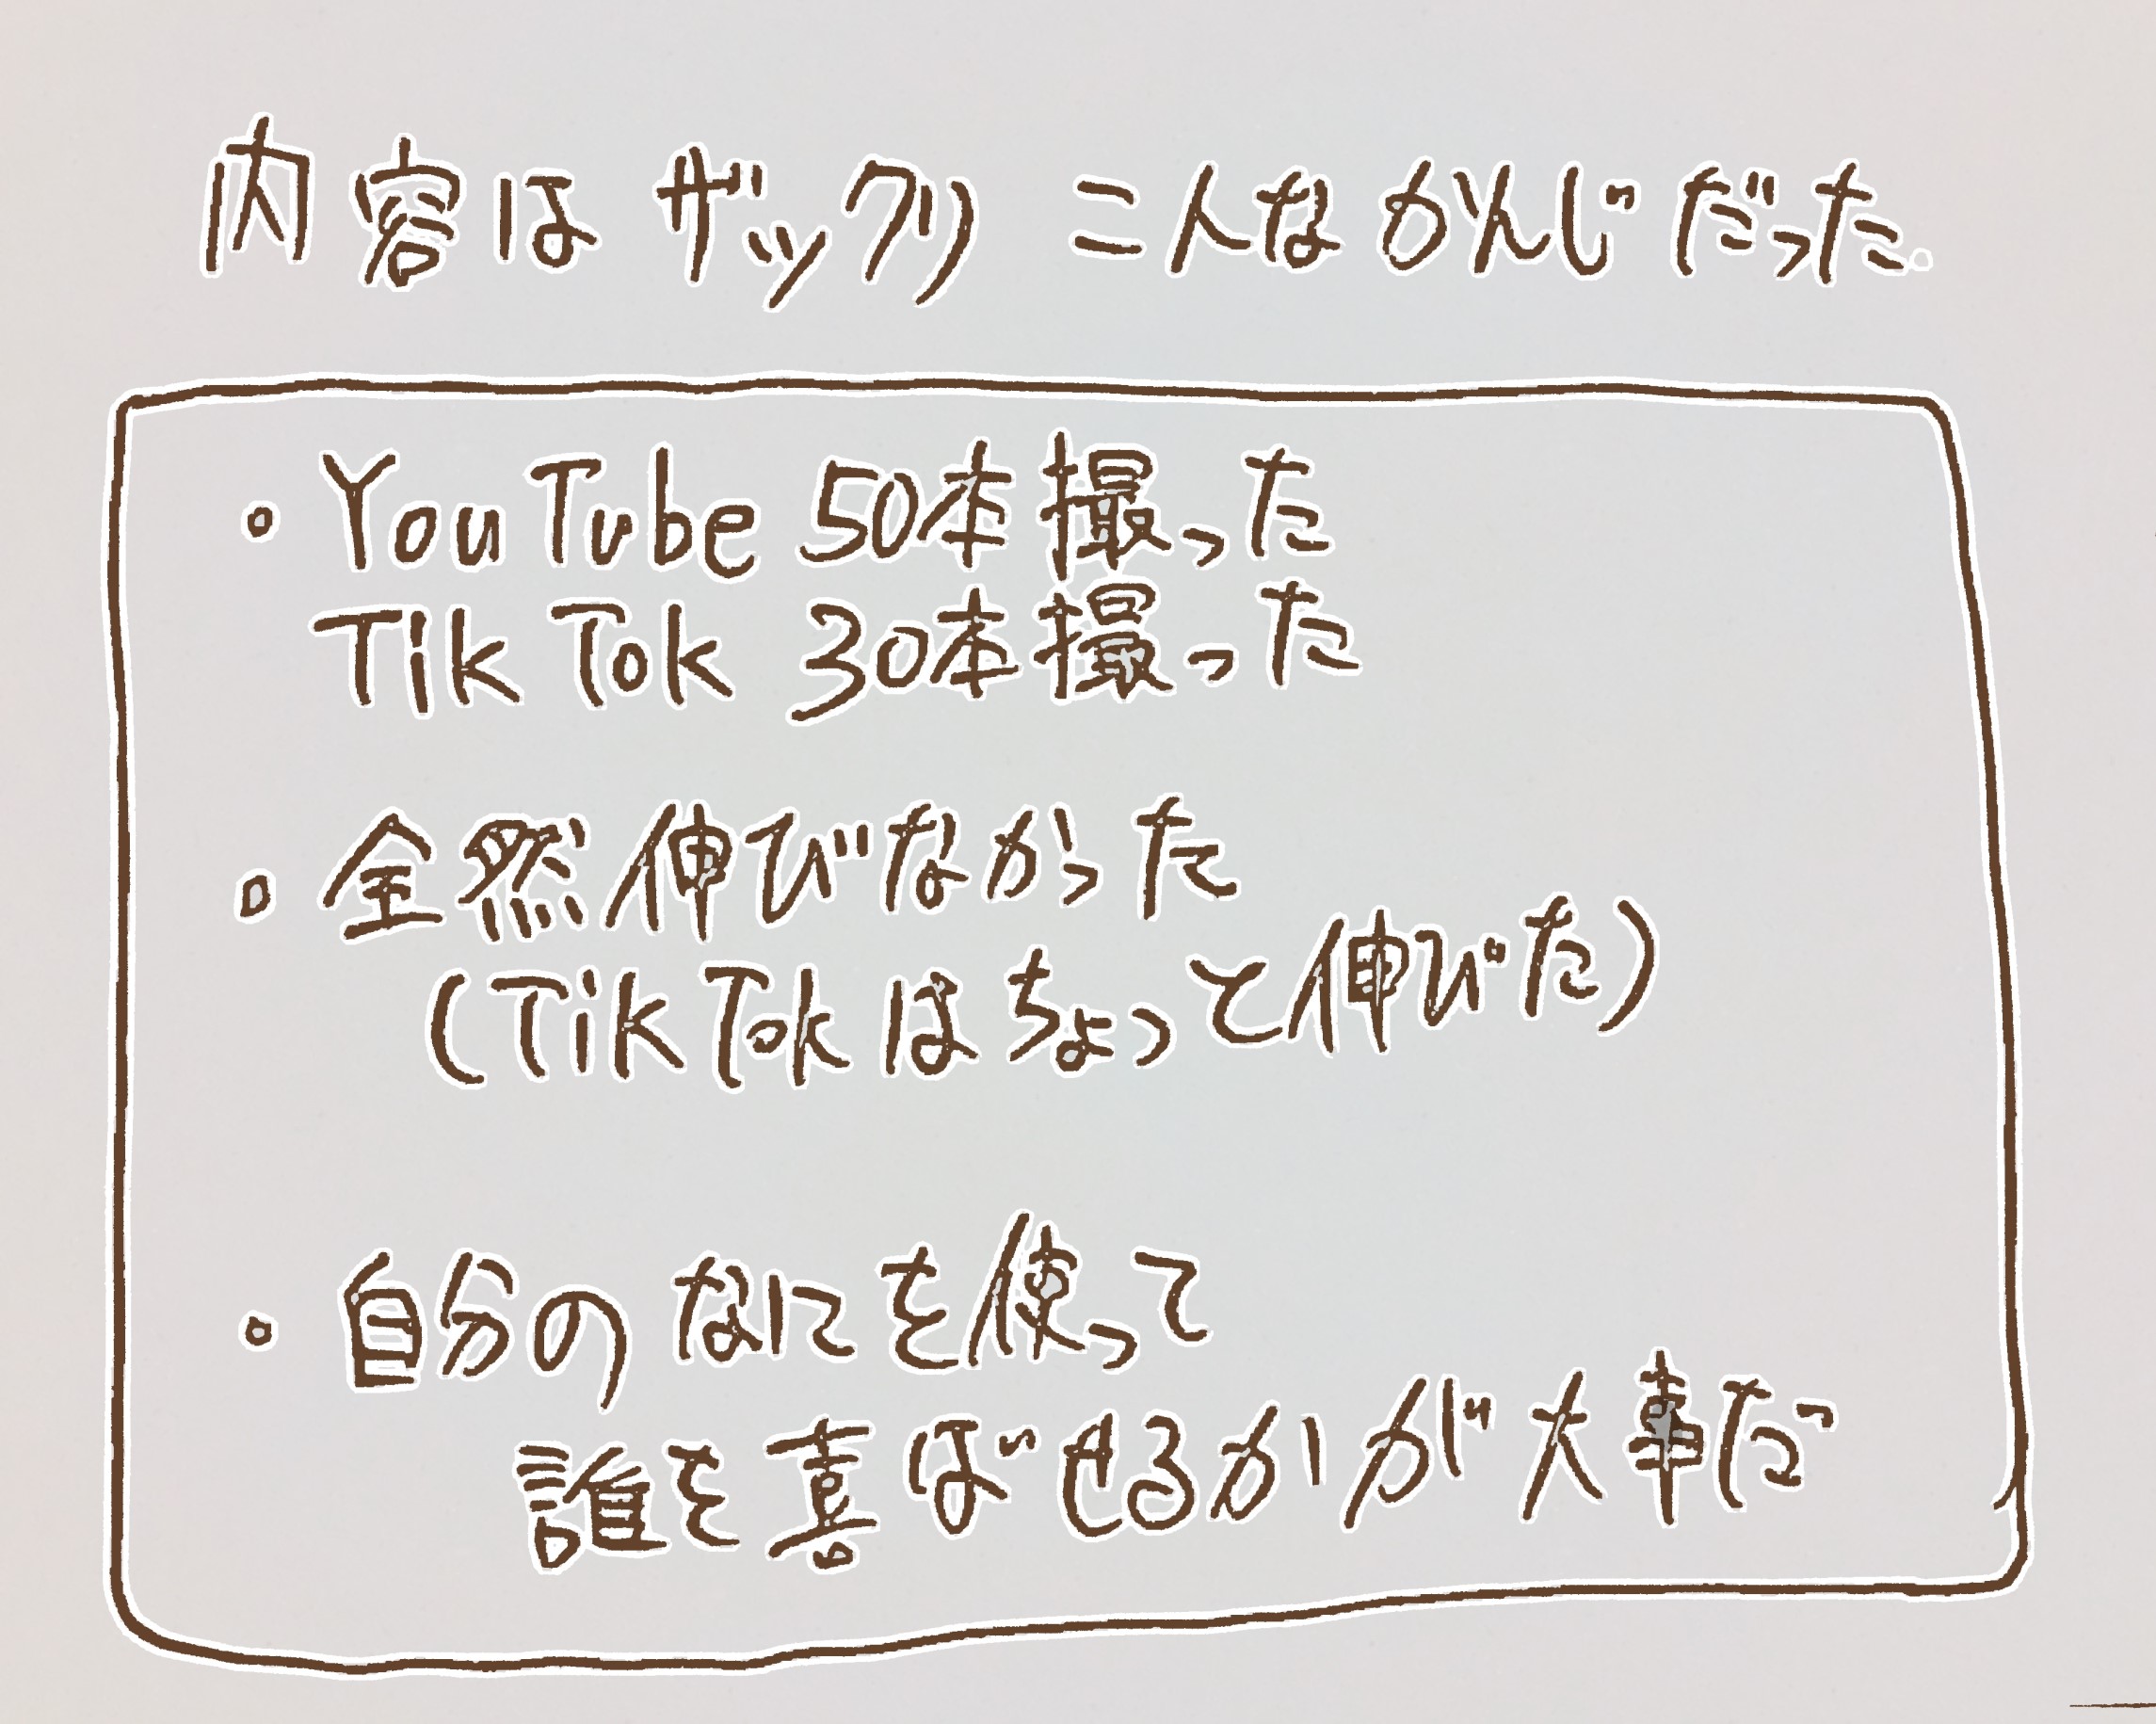 内容はザックリ こんなかんじだった。
・YouTube 50本撮った
TikTok 30本撮った
・全然伸びなかった
(TikTokはちょっと伸びた)
・自分のなにを使って
誰を喜ばせるかが大事だ